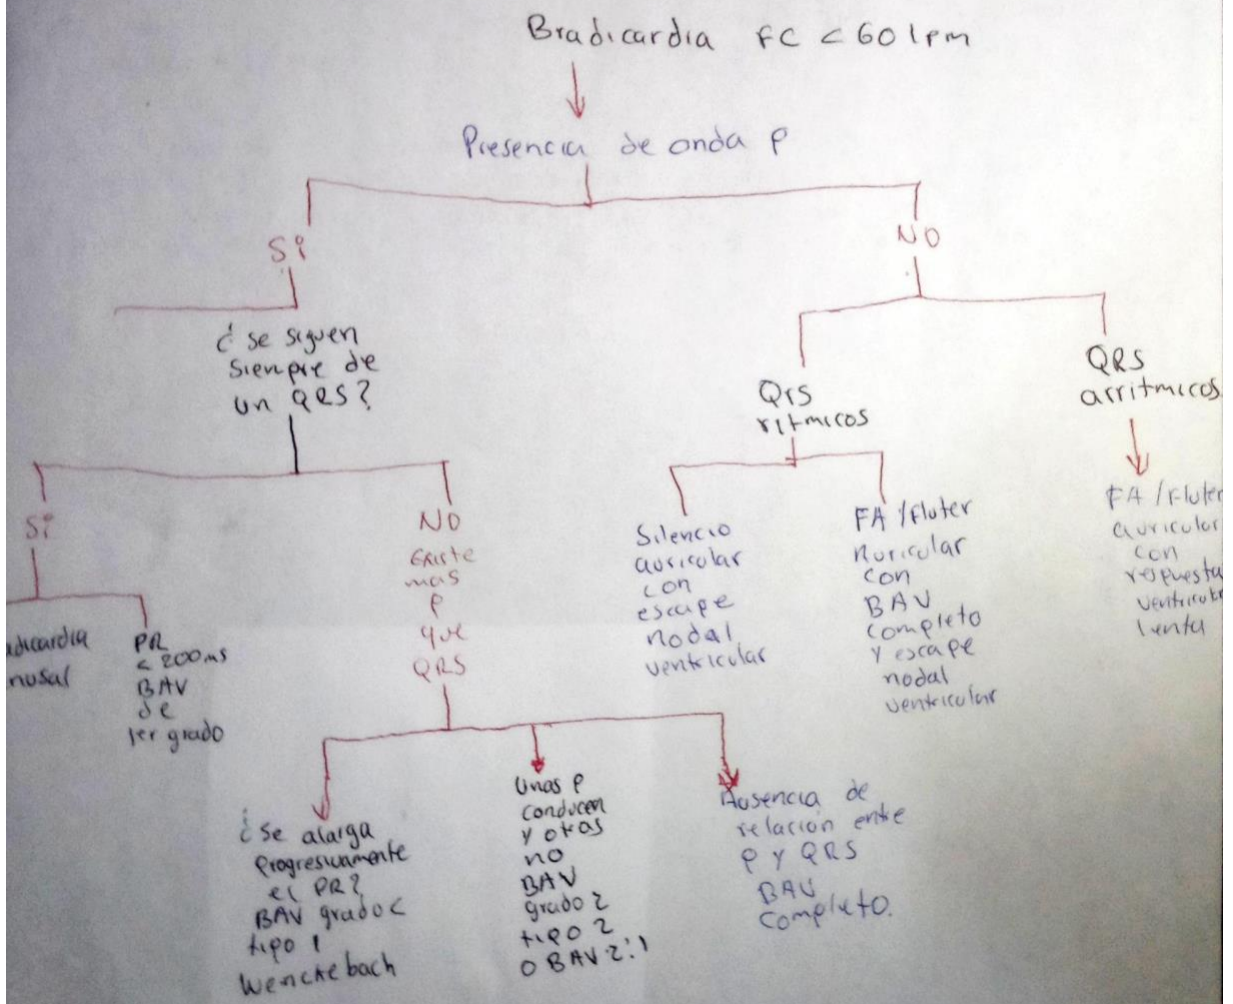 Bradicardia FC < 60 lpm
Presencia de onda P
Si
NO
¿ se siguen
siempre de
un QRS?
Qrs
ritmicos
QRS
arritmicos
Si
NO
Existe
mas
P
que
QRS
Silencio
auricular
con
escape
nodal
ventricular
FA / Fluter
Auricular
con
BAV
completo
y escape
nodal
ventricular
FA / Fluter
auricular
con
respuesta
ventricular
lenta
adicardia
nusal
PR
< 200ms
BAV
de
1er grado
¿ Se alarga
Progresivamente
el PR?
BAV grado 2
tipo 1
Wenckebach
Unas P
conducen
y otras
no
BAV
grado 2
tipo 2
o BAV 2:1
Ausencia de
relación entre
P y QRS
BAV
Completo.